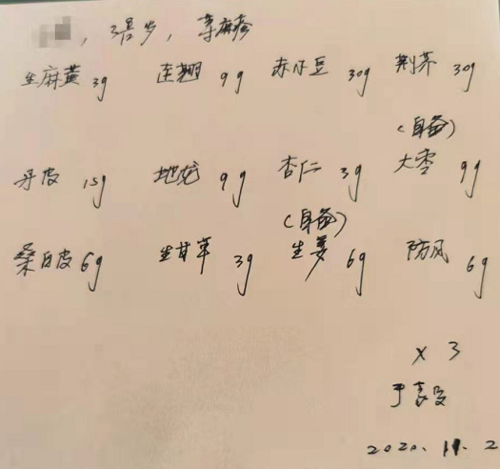 , 3岁, 荨麻疹
生麻黄 3g 连翘 9g 赤小豆 30g 荆芥 30g
(自备)
丹皮 15g 地龙 9g 杏仁 3g 大枣 9g
(自备)
桑白皮 6g 生甘草 3g 生姜 6g 防风 6g
x 3
2020.11.2